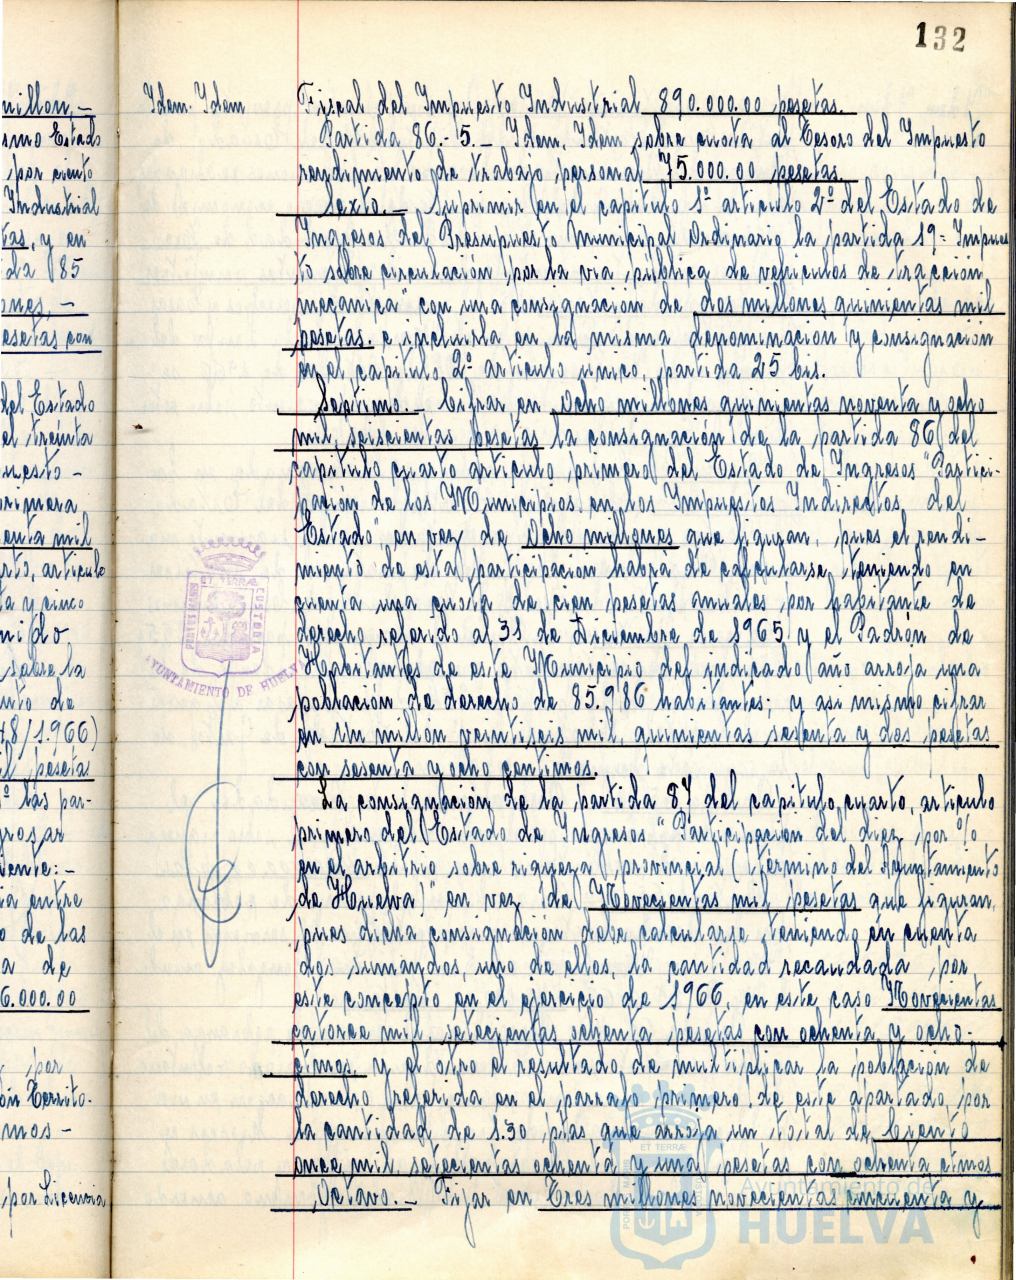 132
millon,-
smo Estado
por ciento
Industrial
tas, y en
da 85
ones,-
esetas con
del Estado
el treinta
uesto-
primera
enta mil
rto, articulo
ta y cinco
nido
sobre la
nto de
48/1966)
il pesetas
1º las par-
grosar
dente:-
ia entre
o de las
a de
6.000.00
por
ón Territo-
mos-
por Licencia
Idem. Idem
Fiscal del Impuesto Industrial 890.000.00 pesetas.
Partida 86.-5.- Idem, Idem sobre cuota al Tesoro del Impuesto
rendimiento de trabajo personal 75.000.00 pesetas.
Sexto.- Suprimir en el capitulo 1º articulo 2º del Estado de
Ingresos del Presupuesto Municipal Ordinario la partida 19= Impues
to sobre circulación por la via pública de vehiculos de tracción
mecanica" con una consignación de dos millones quinientas mil
pesetas. e incluirla en la misma denominación y consignación
en el capitulo 2º articulo unico, partida 25 bis.
Septimo.- Cifrar en Ocho millones quinientas noventa y ocho
mil, seiscientas pesetas la consignación de la partida 86 del
capitulo cuarto articulo primero del Estado de Ingresos "Partici-
pación de los Municipios en los Impuestos Indirectos del
Estado" en vez de Ocho millones que figuran, pues el rendi-
miento de esta participación habrá de calcularse teniendo en
cuenta una cuota de cien pesetas anuales por habitante de
derecho referido al 31 de Diciembre de 1965 y el Padrón de
Habitantes de este Municipio del indicado año arroja una
población de derecho de 85.986 habitantes; y asi mismo cifrar
en Un millón veintiseis mil, quinientas sesenta y dos pesetas
con sesenta y ocho centimos.
La consignación de la partida 87 del capitulo, cuarto, articulo
primero del Estado de Ingresos "Participación del diez por %
en el arbitrio sobre riqueza provincial (termino del Ayuntamiento
de Huelva)" en vez de Novecientas mil pesetas que figuran,
pues dicha consignación debe calcularse teniendo en cuenta
dos sumandos, uno de ellos, la cantidad recaudada por
este concepto en el ejercicio de 1966, en este caso Novecientas
catorce mil, setecientas ochenta pesetas con ochenta y ocho-
ctmos. y el otro el resultado de multiplicar la población de
derecho referida en el parrafo primero de este apartado por
la cantidad de 1.30 ptas, que arroja un total de Ciento
once mil setecientas ochenta y una pesetas con ochenta ctmos
Octavo.- Fijar en Tres millones novecientas cincuenta y
ET TERRÆ
CUSTODIA
AYUNTAMIENTO DE HUELVA
Ayuntamiento de
HUELVA